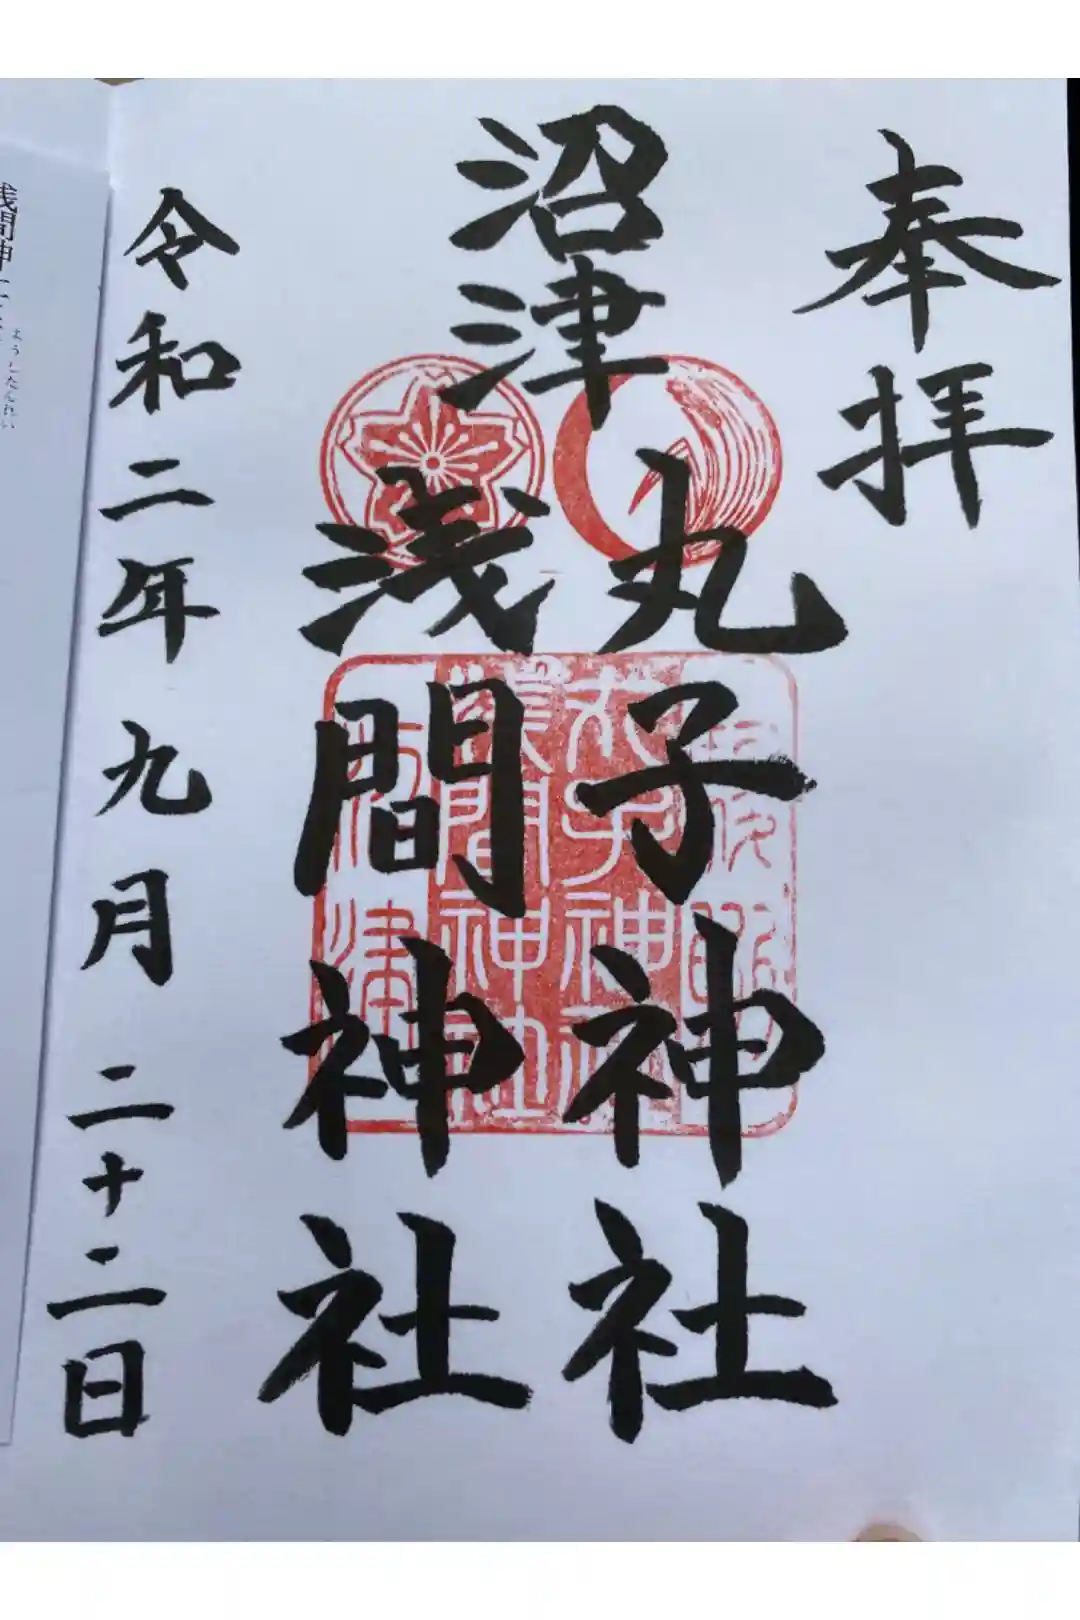 奉拝
沼津
丸子神社
浅間神社
令和二年九月二十二日
浅間神